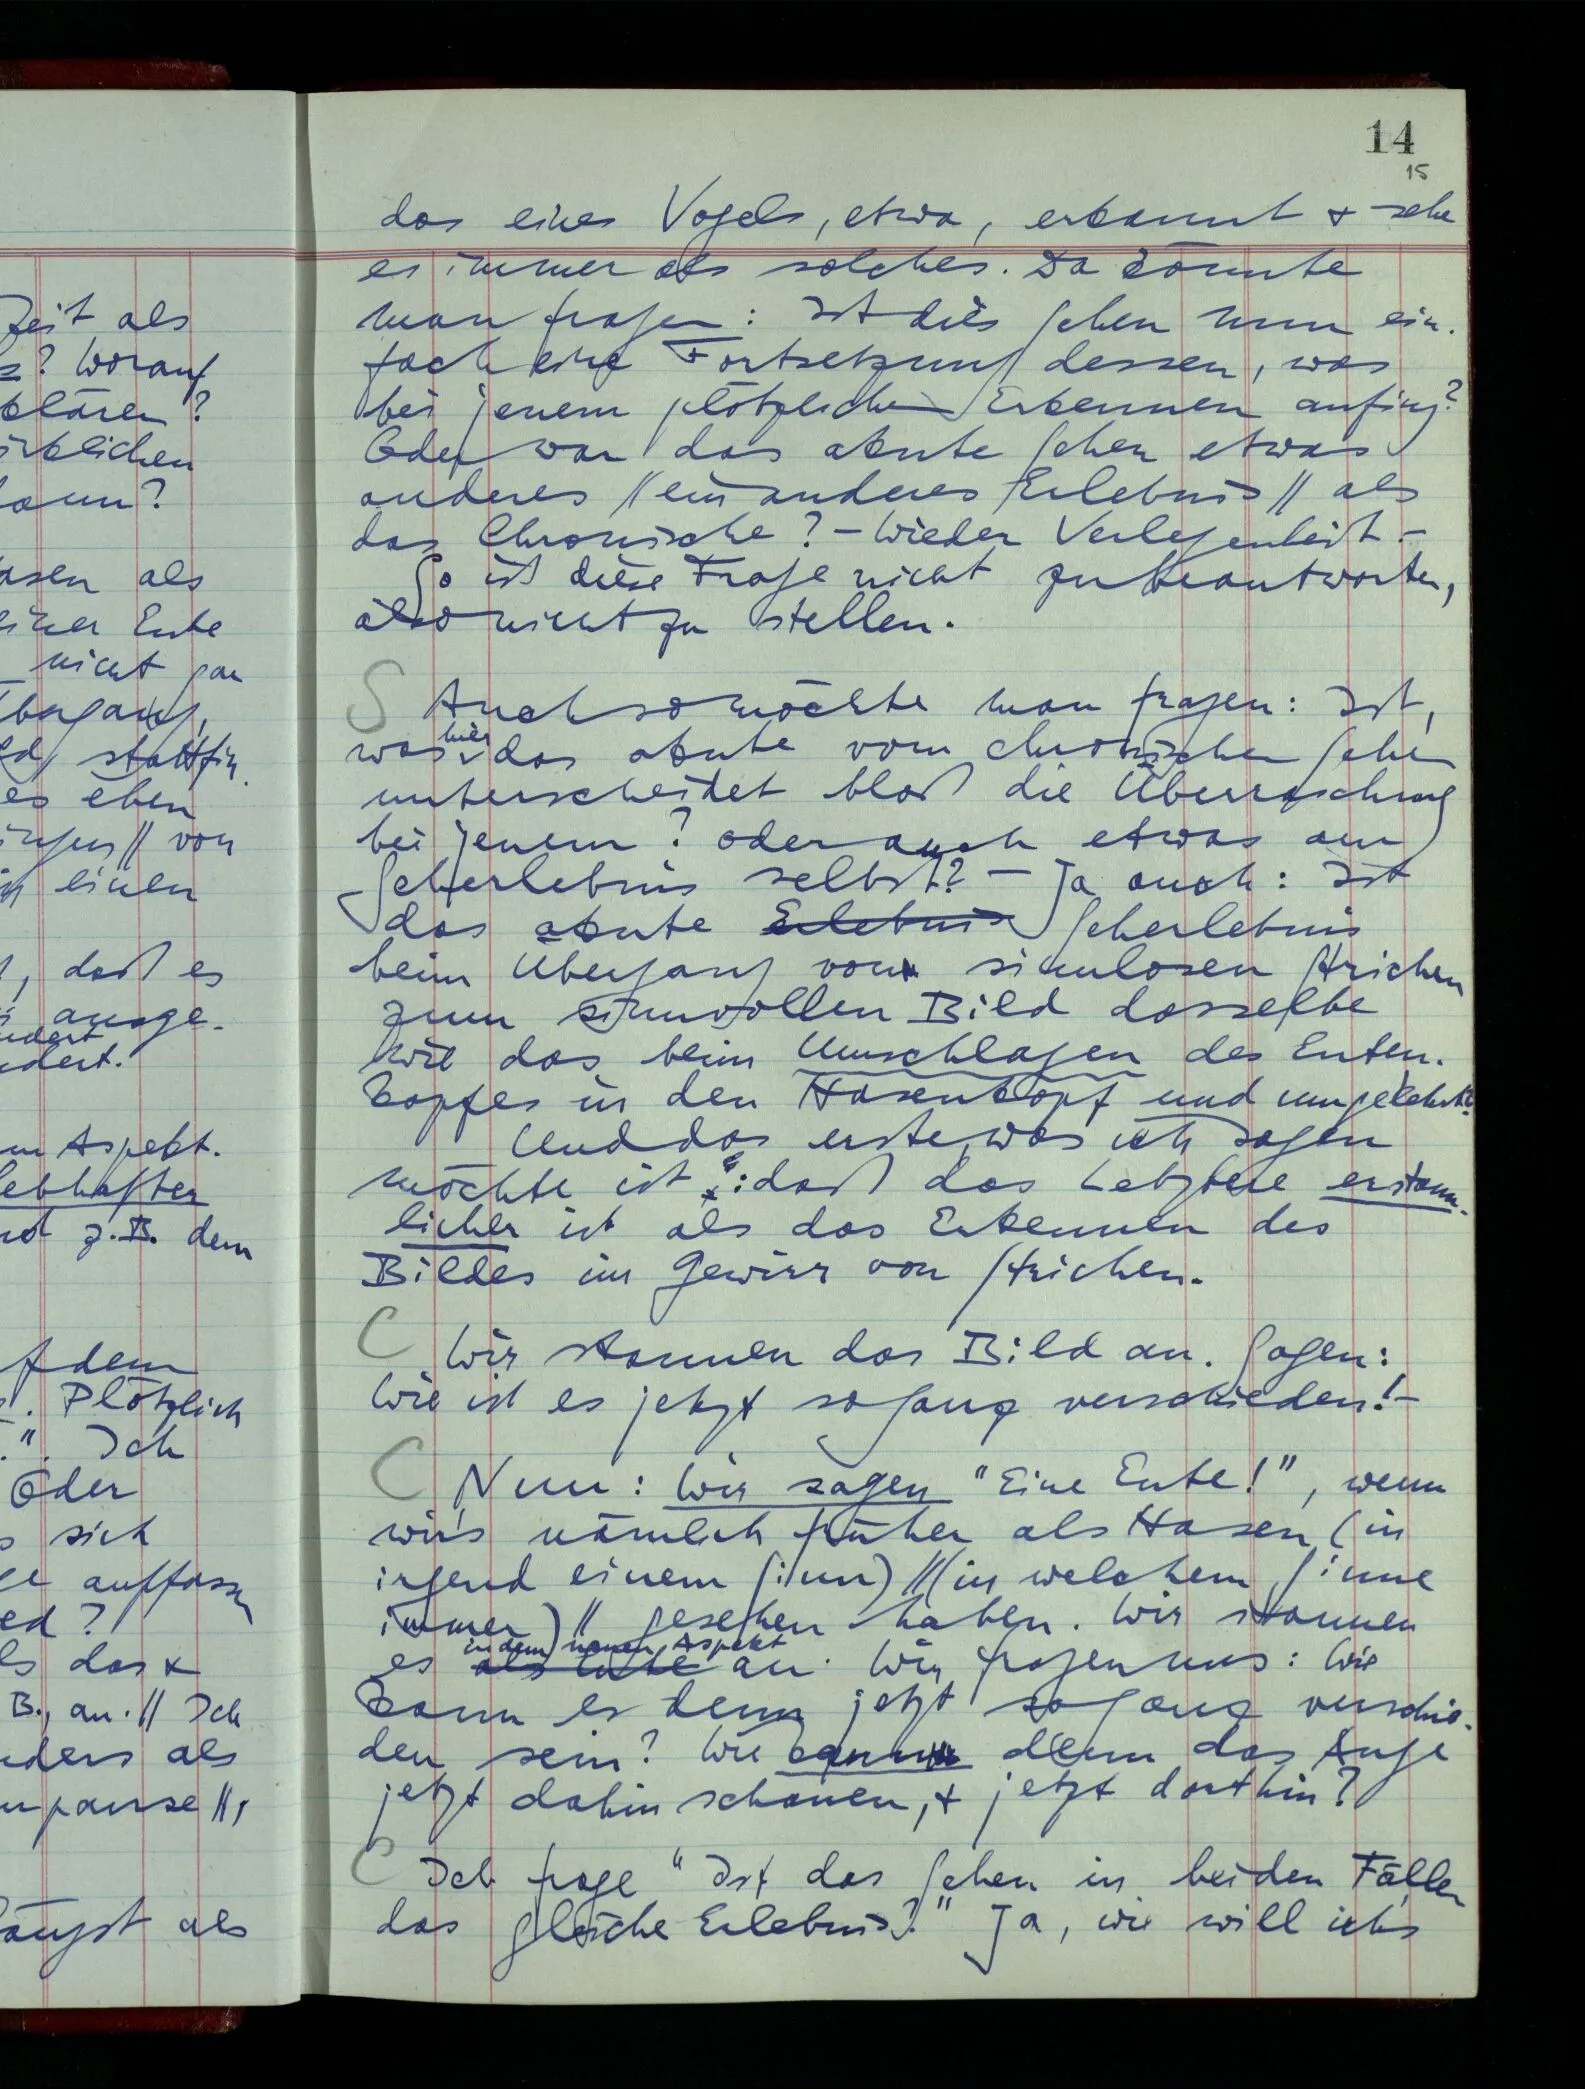 14
15
das eines Vogels, etwa, erkannt + sehe
es immer als solches. Da könnte
man fragen: Ist dies Sehen nun ein-
fach eine Fortsetzung dessen, was
bei jenem plötzlichen Erkennen anfing?
Oder war das akute Sehen etwas
anderes //ein anderes Erlebnis// als
das Chronische? – Wieder Verlegenheit –
So ist diese Frage nicht zu beantworten,
also nicht zu stellen.
S Auch so möchte man fragen: Ist,
was hier das akute vom chronischen Sehen
unterscheidet bloß die Überraschung
bei jenem? oder auch etwas am
Seherlebnis selbst? – Ja auch: Ist
das akute Erlebnis Seherlebnis
beim Übergang von sinnlosen Strichen
zum sinnvollen Bild dasselbe
wie das beim Umschlagen des Enten-
kopfes in den Hasenkopf und umgekehrt?
Und das erste, was ich sagen
möchte ist: daß das Letztere erstaun-
licher ist als das Erkennen des
Bildes im Gewirr von Strichen.
C Wir staunen das Bild an. Sagen:
Wie ist es jetzt so ganz verschieden! –
C Nun: Wir sagen "Eine Ente!", wenn
wir's nämlich früher als Hasen (in
irgend einem Sinn) //(in welchem Sinne
immer)// gesehen haben. Wir staunen
in dem neuen Aspekt
es als Ente an. Wir fragen uns: Wie
kann es denn jetzt so ganz verschie-
den sein? Wie kann denn das Auge
jetzt dahin schauen, + jetzt dorthin?
C Ich frage "Ist das Sehen in beiden Fällen
das gleiche Erlebnis?" Ja, wie will ich's
Zeit als
? Worauf
klären?
irklichen
kann?
asen als
einer Ente
nicht gar
bergang,
stattfin-
es eben
// von
einen
, daß es
ausge-
ndert
ndert.
m Aspekt.
lebhafter
z.B. dem
f dem
. Plötzlich
". Ich
Oder
s sich
auffassen
ed?
ls das +
B., an. // Ich
nders als
npause //,
längst als